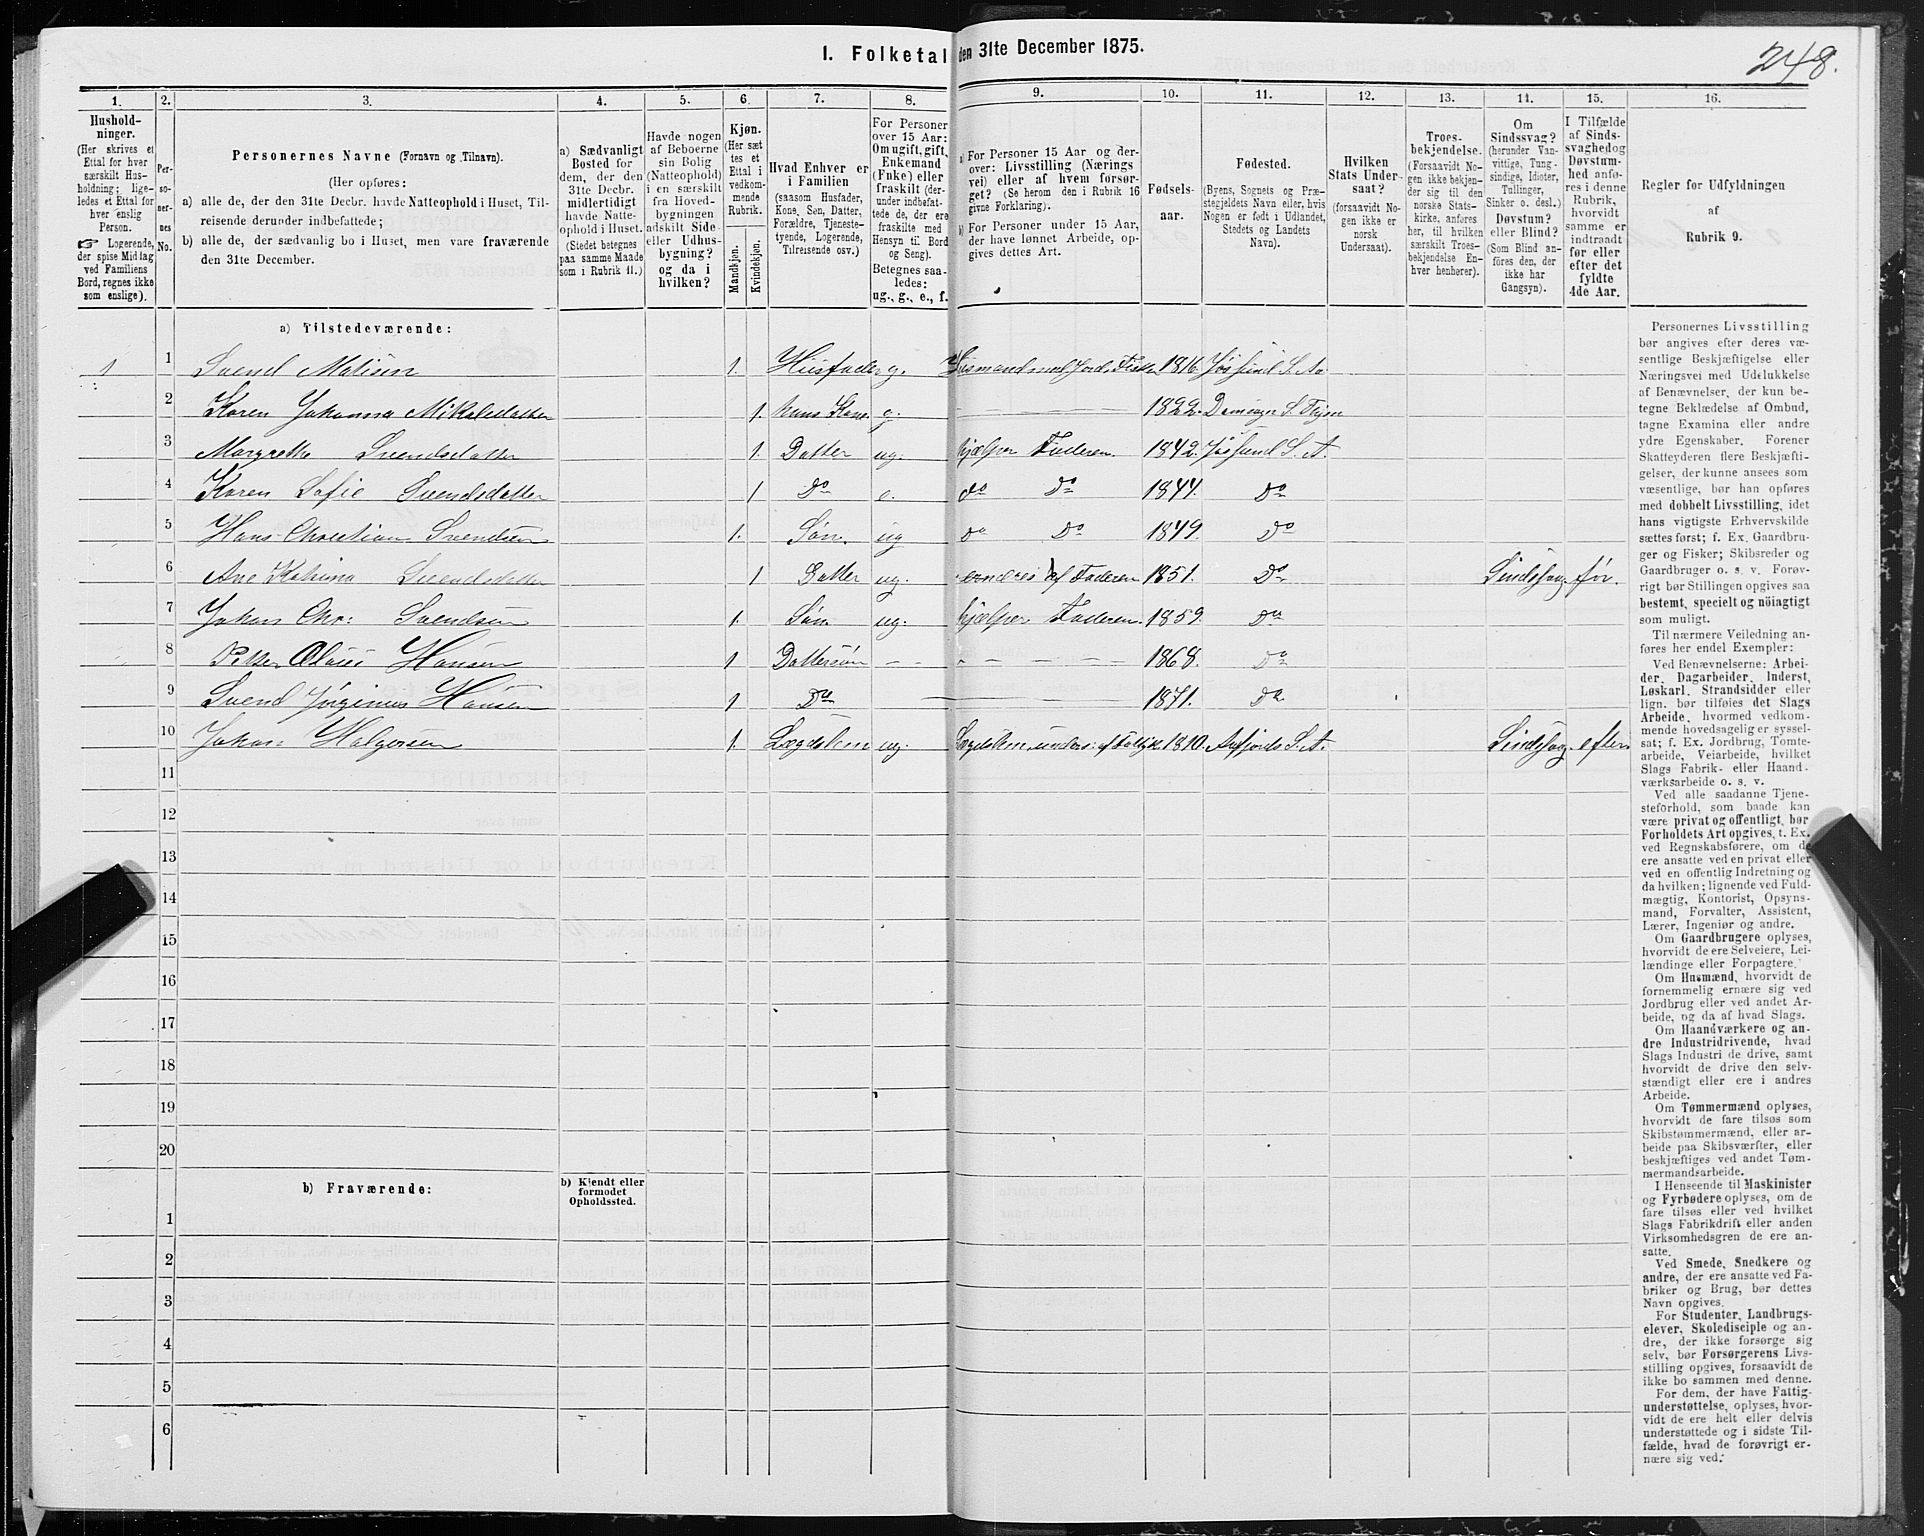 I. Folketal den 31te December 1875.
248.
1. 2. 3. 4. 5. 6. 7. 8. 9. 10. 11. 12. 13. 14. 15. 16.
Hushold-
ninger.
(Her skrives et
Ettal for hver
særskilt Hus-
holdning; lige-
ledes et Ettal for
hver enslig
Person.
☞ Logerende,
der spise Middag
ved Familiens
Bord, regnes ikke
som enslige).
Per-
so-
ner-
nes
No.
Personernes Navne (Fornavn og Tilnavn).
(Her opføres:
a) alle de, der den 31te Decbr. havde Natteophold i Huset, Til-
reisende derunder indbefattede;
b) alle de, der sædvanlig bo i Huset, men vare fraværende
den 31te December.
a) Sædvanligt
Bosted for
dem, der den
31te Decbr.
midlertidigt
havde Natte-
ophold i Huset.
(Stedet betegnes
paa samme Maade
som i Rubrik 11.)
Havde nogen
af Beboerne
sin Bolig
(Natteophold)
i en særskilt
fra Hoved-
bygningen
adskilt Side-
eller Udhus-
bygning?
og da i
hvilken?
Kjøn.
(Her sæt-
tes et
Ettal i
vedkom-
mende
Rubrik.
Mandkjøn.
Kvindekjøn.
Hvad Enhver er
i Familien
(saasom Husfader,
Kone, Søn, Datter,
Forældre, Tjeneste-
tyende, Logerende,
Tilreisende osv.)
For Personer
over 15 Aar:
Om ugift, gift,
Enkemand
(Enke) eller
fraskilt (der-
under indbefat-
tede de, der ere
fraskilte med
Hensyn til Bord
og Seng).
Betegnes saa-
ledes:
ug., g., e., f.
a) For Personer 15 Aar og der-
over: Livsstilling (Nærings
vei) eller af hvem forsør-
get? (Se herom den i Rubrik 16
givne Forklaring).
b) For Personer under 15 Aar,
der have lønnet Arbeide, op-
gives dettes Art.
Fødsels-
aar.
Fødested.
(Byens, Sognets og Præ-
stegjeldets Navn eller, hvis
Nogen er født i Udlandet,
Stedets og Landets
Navn).
Hvilken
Stats Under-
saat?
(forsaavidt No-
gen ikke er
norsk
Undersaat).
Troes-
bekjendelse.
(Forsaavidt No-
gen ikke bekjen-
der sig til den
norske Stats-
kirke, anføres
her, til hvilken
særskilt Troes-
bekjendelse En-
hver henhører).
Om
Sindssvag?
(herunder Van-
vittige, Tung-
sindige, Idioter,
Tullinger,
Sinker o. desl.)
Døvstum?
eller Blind?
(Som Blind an-
føres den, der
ikke har
Gangsyn).
I Tilfælde
af Sinds-
svaghed og
Døvstum-
hed anfø-
res i denne
Rubrik,
hvorvidt
samme er
indtraadt
før eller
efter det
fyldte
4de Aar.
Regler for Udfyldningen
af
Rubrik 9.
a) Tilstedeværende:
1 1 Svend Matisen 1. Husfader g. Husmand med Jord, Fisker 1816. Jøssund S. Aa
2 Karen Johanna Mikalsdatter 1. hans Kone g. 1822.
3 Margrethe Svendsdatter 1. Datter ug. hjælper Faderen. 1842. Jøssund S. A.
4 Karen Sofie Svendsdatter 1 Do e. do Do 1844. Do
5 Hans Christian Svendsen 1. Søn. ug do Do 1849. Do
6 Ane Katrina Svendsdatter 1 Datter ug. ernæres af Faderen 1851. Do Sindssvag før.
7 Johan Chr: Svendsen 1. Søn ug. hjælper Faderen. 1859. Do
8 Petter Olaus Hansen 1 Dattersøn 1868. Do
9 Svend Jørginus Hansen 1 Do 1871. Do
10 Johan Holgersen 1. Lægdslem ug. Lægdslem, unders: af Fattigk. 1810. Aafjords S. A. Sindssvag efter.
11
12
13
14
15
16
17
18
19
20
b) Fraværende:
b) Kjendt eller
formodet
Opholdssted.
1
2
3
4
5
6
Personernes Livsstilling
bør angives efter deres væ-
sentlige Beskjæftigelse eller
Næringsvei med Udelukkelse
af Benævnelser, der kun be-
tegne Beklædelse af Ombud,
tagne Examina eller andre
ydre Egenskaber. Forener
Skatteyderen flere Beskjæfti-
gelser, der kunne ansees som
væsentlige, bør han opføres
med dobbelt Livsstilling, idet
hans vigtigste Erhvervskilde
sættes først; f. Ex. Gaardbru-
ger og Fisker; Skibsreder og
Gaardbruger o. s. v. Forøv-
rigt bør Stillingen opgives saa
bestemt, specielt og nøiagtigt
som muligt.
Til nærmere Veiledning an-
føres her endel Exempler:
Ved Benævnelserne: Arbei-
der, Dagarbeider, Inderst,
Løskarl, Strandsidder eller
lign. bør tilføies det Slags
Arbeide, hvormed vedkom-
mende hovedsagelig er syssel-
sat; f. Ex. Jordbrug, Tomte-
arbeide, Veiarbeide, hvilket
Slags Fabrik- eller Haand-
værksarbeide o. s. v.
Ved alle saadanne Tjene-
steforhold, som baade kan
være privat og offentligt, bør
Forholdets Art opgives, t. Ex.
ved Regnskabsførere, om de
ere ansatte ved en privat eller
ved en offentlig Indretning og
da hvilken; lignende ved Fuld-
mægtig, Kontorist, Opsyns-
mand, Forvalter, Assistent,
Lærer, Ingeniør og andre.
Om Gaardbrugere oplyses,
hvorvidt de ere Selveiere, Lei-
lændinge eller Forpagtere.
Om Husmænd, hvorvidt de
fornemmelig ernære sig ved
Jordbrug eller ved andet Ar-
beide, og da af hvad Slags.
Om Haandværkere og an-
dre Industridrivende, hvad
Slags Industri de drive, samt
hvorvidt de drive den selv-
stændigt eller ere i andres
Arbeide.
Om Tømmermænd oplyses,
hvorvidt de fare tilsøs som
Skibstømmermænd, eller ar-
beide paa Skibsværfter, eller
beskjæftiges ved andet Tøm-
mermandsarbeide.
I Henseende til Maskinister
og Fyrbødere oplyses, om de
fare tilsøs eller ved hvilket
Slags Fabrikdrift eller anden
Virksomhedsgren de ere an-
satte.
Ved Smede, Snedkere og
andre, der ere ansatte ved Fa-
briker og Brug, bør dettes
Navn opgives.
For Studenter, Landbrugs-
elever, Skoledisciple og an-
dre, der ikke forsørge sig
selv, bør Forsørgerens Livs-
stilling opgives, forsaavidt de
ikke bo sammen med denne.
For dem, der have Fattig-
understøttelse, oplyses, hvor-
vidt de ere helt eller delvis
understøttede og i sidste Til-
fælde, hvad de forøvrigt er-
nære sig ved.